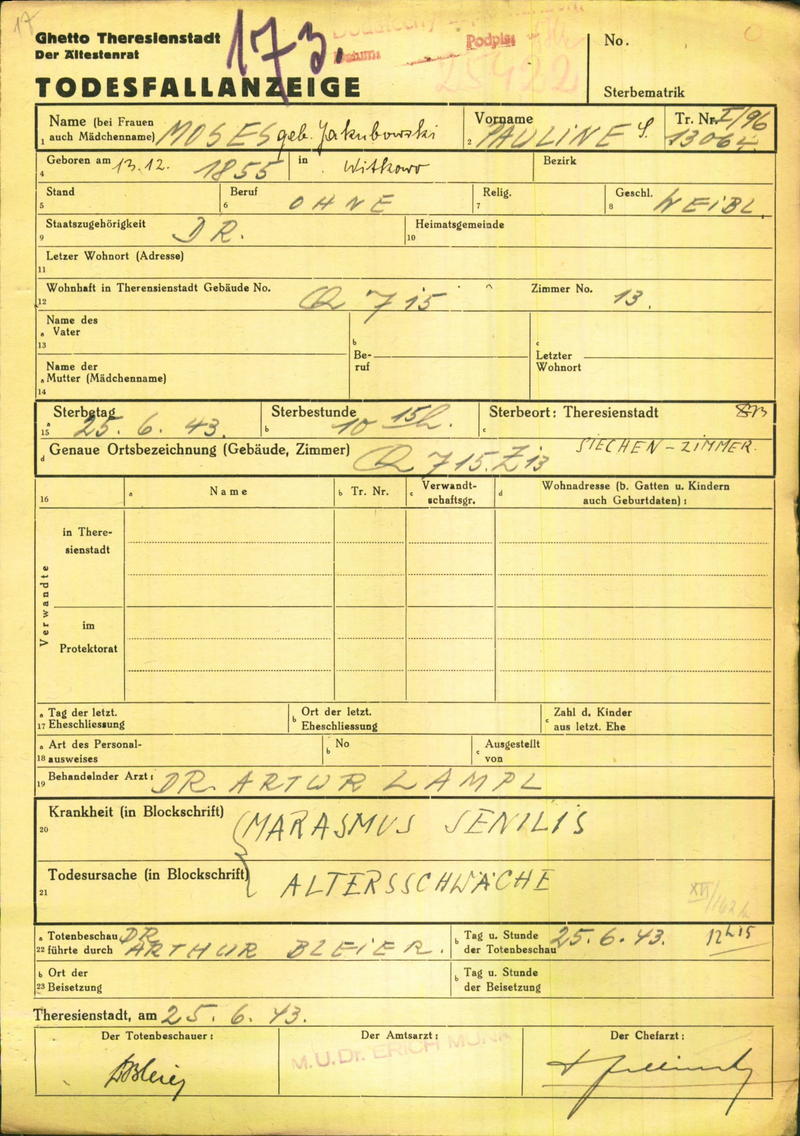 17
Ghetto Theresienstadt
Der Ältestenrat
173.
Podpis:
25422
No.
TODESFALLANZEIGE
Sterbematrik
Name (bei Frauen
1 auch Mädchenname) MOSES geb. Jakubowski
Vorname
2 PAULINE S.
Tr. Nr. I/96
4 Geboren am 13.12. 1855 in Witkowo Bezirk
5 Stand
6 Beruf OHNE
7 Relig.
8 Geschl. WEIBL.
9 Staatszugehörigkeit DR.
10 Heimatsgemeinde
11 Letzer Wohnort (Adresse)
12 Wohnhaft in Therensienstadt Gebäude No. Q 715 Zimmer No. 13.
Name des
a Vater
13
b
Be-
ruf
c
Letzter
Wohnort
Name der
a Mutter (Mädchenname)
14
a 15 Sterbetag 25. 6. 43.
b Sterbestunde 10 15h.
c Sterbeort: Theresienstadt
d Genaue Ortsbezeichnung (Gebäude, Zimmer) Q 715. Z 13 SIECHEN-ZIMMER.
16
a Name
b Tr. Nr.
c Verwandt-
schaftsgr.
d Wohnadresse (b. Gatten u. Kindern
auch Geburtdaten):
Verwandte
in There-
sienstadt
im
Protektorat
a Tag der letzt.
17 Eheschliessung
b Ort der letzt.
Eheschliessung
c Zahl d. Kinder
aus letzt. Ehe
a Art des Personal-
18 ausweises
b No
c Ausgestellt
von
19 Behandelnder Arzt: DR. ARTUR LAMPL
20 Krankheit (in Blockschrift) MARASMUS SENILIS
21 Todesursache (in Blockschrift) ALTERSSCHWÄCHE
a Totenbeschau DR.
22 führte durch ARTHUR BLEIER.
b Tag u. Stunde
der Totenbeschau 25. 6. 43. 12h15
b Ort der
23 Beisetzung
b Tag u. Stunde
der Beisetzung
Theresienstadt, am 25. 6. 43.
Der Totenbeschauer:
Der Amtsarzt:
Der Chefarzt:
M.U.Dr. ERICH MUNK